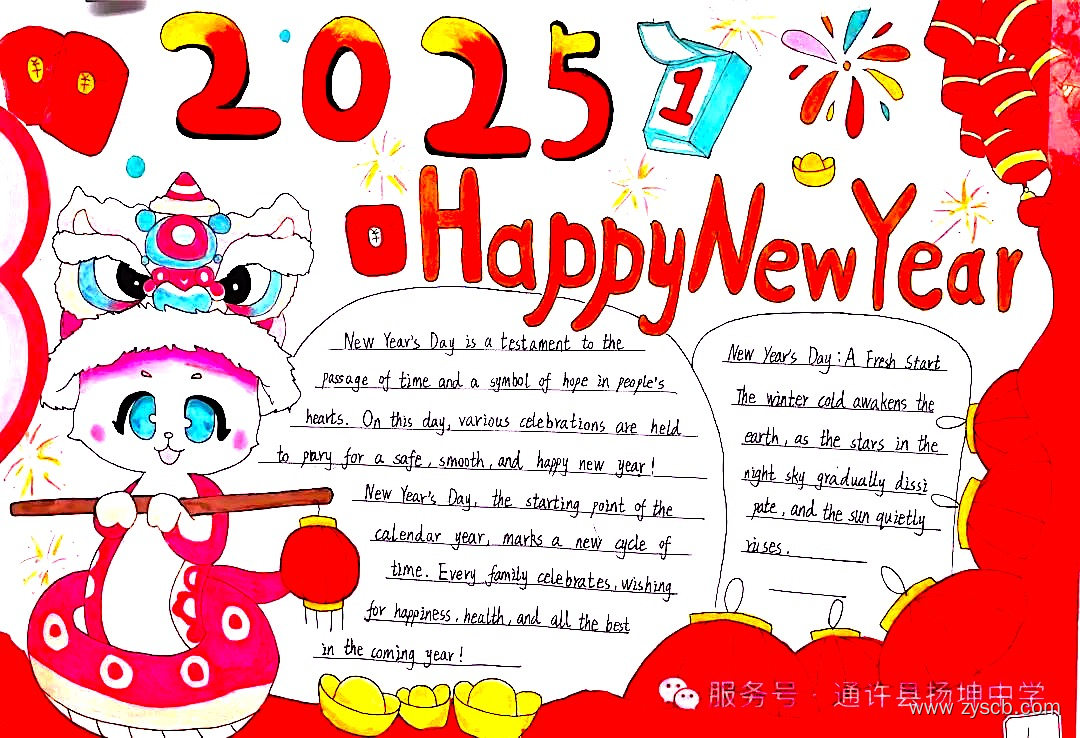 2025
1
Happy New Year
New Year's Day is a testament to the
passage of time and a symbol of hope in people's
hearts. On this day, various celebrations are held
to prary for a safe, smooth, and happy new year!
New Year's Day, the starting point of the
calendar year, marks a new cycle of
time. Every family celebrates, wishing
for happiness, health, and all the best
in the coming year!
New Year's Day: A Fresh Start
The winter cold awakens the
earth, as the stars in the
night sky gradually dissi
pate, and the sun quietly
riuses.
服务号·通许县扬坤中学
www.zyscb.com